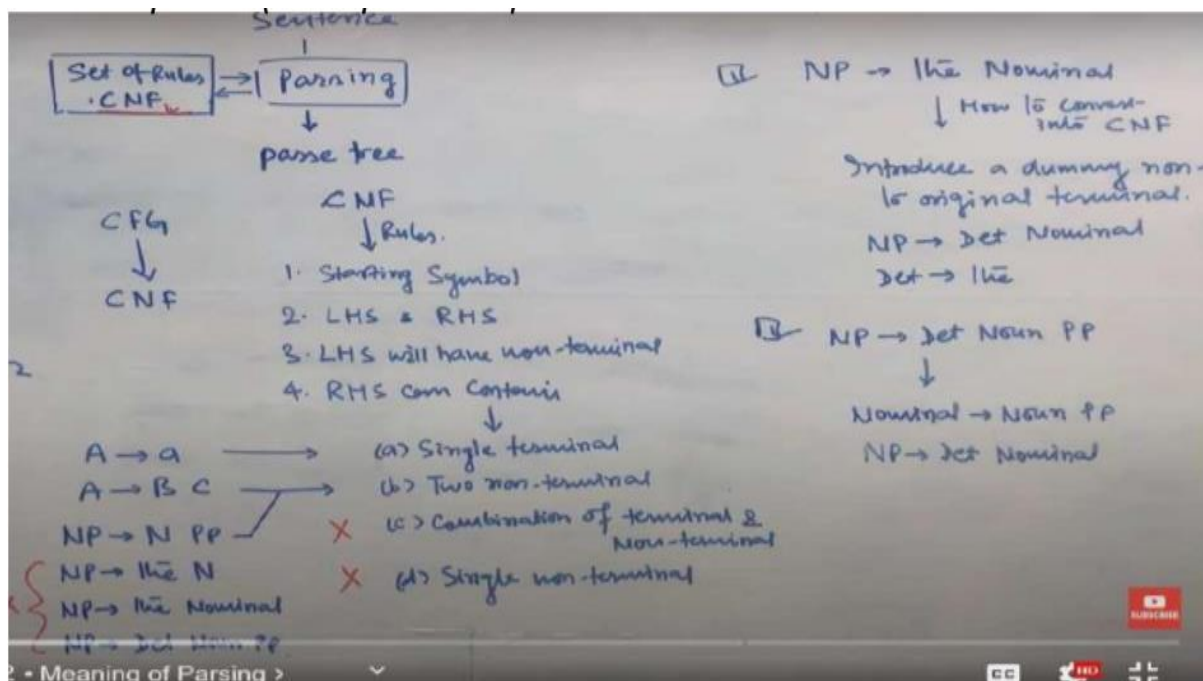 Sentence
Set of Rules
. CNF
Parsing
parse tree
CFG
CNF
CNF
Rules.
1. Starting Symbol
2. LHS & RHS
3. LHS will have non-terminal
4. RHS can Contain
2
A → a
(a) Single terminal
A → B C
(b) Two non-terminal
NP → N PP
X (c) Combination of terminal &
Non-terminal
NP → the N
X (d) Single non-terminal
NP → the Nominal
NP → Det Noun PP
NP → the Nominal
How to convert
into CNF
Introduce a dummy non-
to original terminal.
NP → Det Nominal
Det → the
NP → Det Noun PP
Nominal → Noun PP
NP → Det Nominal
SUBSCRIBE
2 • Meaning of Parsing >
CC
HD